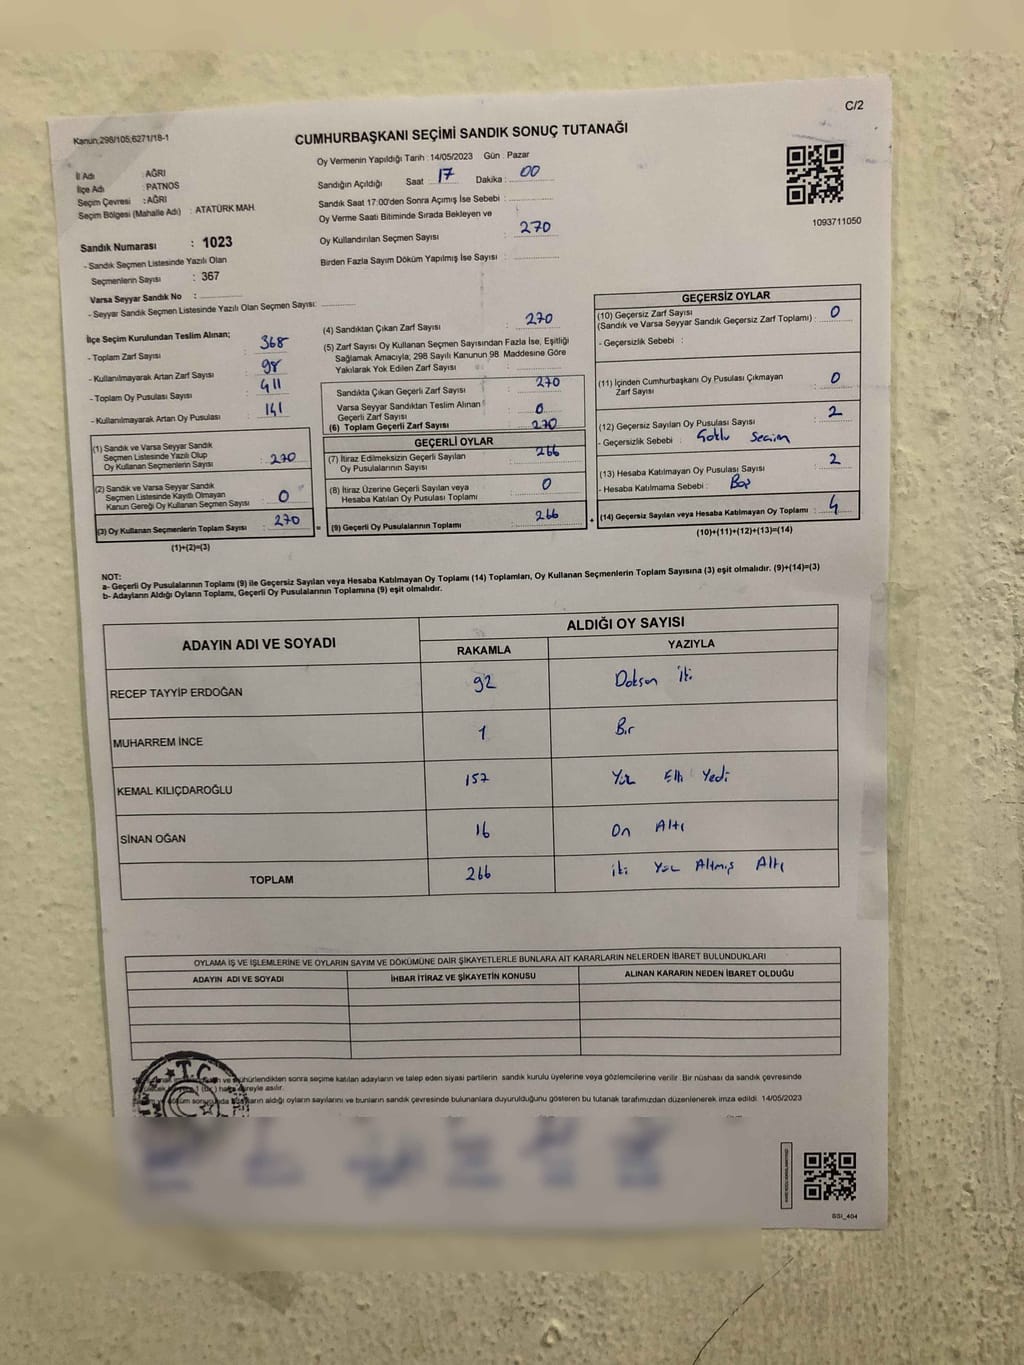 C/2
Kanun:298/105;6271/18-1
CUMHURBAŞKANI SEÇİMİ SANDIK SONUÇ TUTANAĞI
İl Adı : AĞRI
İlçe Adı : PATNOS
Seçim Çevresi : AĞRI
Seçim Bölgesi (Mahalle Adı) : ATATÜRK MAH.
Sandık Numarası : 1023
- Sandık Seçmen Listesinde Yazılı Olan
Seçmenlerin Sayısı : 367
Varsa Seyyar Sandık No : ............
- Seyyar Sandık Seçmen Listesinde Yazılı Olan Seçmen Sayısı: ............
Oy Vermenin Yapıldığı Tarih : 14/05/2023 Gün : Pazar
Sandığın Açıldığı Saat : 17 Dakika : 00
Sandık Saat 17:00'den Sonra Açımış İse Sebebi : ............
Oy Verme Saati Bitiminde Sırada Bekleyen ve
Oy Kullandırılan Seçmen Sayısı : 270
Birden Fazla Sayım Döküm Yapılmış İse Sayısı : ............
1093711050
İlçe Seçim Kurulundan Teslim Alınan;
- Toplam Zarf Sayısı : 368
- Kullanılmayarak Artan Zarf Sayısı : 98
- Toplam Oy Pusulası Sayısı : 411
- Kullanılmayarak Artan Oy Pusulası : 141
(1) Sandık ve Varsa Seyyar Sandık
Seçmen Listesinde Yazılı Olup
Oy Kullanan Seçmenlerin Sayısı : 270
(2) Sandık ve Varsa Seyyar Sandık
Seçmen Listesinde Kayıtlı Olmayan
Kanun Gereği Oy Kullanan Seçmen Sayısı : 0
(3) Oy Kullanan Seçmenlerin Toplam Sayısı : 270
(1)+(2)=(3)
(4) Sandıktan Çıkan Zarf Sayısı : 270
(5) Zarf Sayısı Oy Kullanan Seçmen Sayısından Fazla İse, Eşitliği
Sağlamak Amacıyla; 298 Sayılı Kanunun 98. Maddesine Göre
Yakılarak Yok Edilen Zarf Sayısı : ............
Sandıkta Çıkan Geçerli Zarf Sayısı : 270
Varsa Seyyar Sandıktan Teslim Alınan
Geçerli Zarf Sayısı : 0
(6) Toplam Geçerli Zarf Sayısı : 270
GEÇERLİ OYLAR
(7) İtiraz Edilmeksizin Geçerli Sayılan
Oy Pusulalarının Sayısı : 266
(8) İtiraz Üzerine Geçerli Sayılan veya
Hesaba Katılan Oy Pusulası Toplamı : 0
= (9) Geçerli Oy Pusulalarının Toplamı : 266 +
GEÇERSİZ OYLAR
(10) Geçersiz Zarf Sayısı
(Sandık ve Varsa Seyyar Sandık Geçersiz Zarf Toplamı) : 0
- Geçersizlik Sebebi :
(11) İçinden Cumhurbaşkanı Oy Pusulası Çıkmayan
Zarf Sayısı : 0
(12) Geçersiz Sayılan Oy Pusulası Sayısı : 2
- Geçersizlik Sebebi : Çoklu Seçim
(13) Hesaba Katılmayan Oy Pusulası Sayısı : 2
- Hesaba Katılmama Sebebi : Boş
(14) Geçersiz Sayılan veya Hesaba Katılmayan Oy Toplamı : 4
(10)+(11)+(12)+(13)=(14)
NOT:
a- Geçerli Oy Pusulalarının Toplamı (9) ile Geçersiz Sayılan veya Hesaba Katılmayan Oy Toplamı (14) Toplamları, Oy Kullanan Seçmenlerin Toplam Sayısına (3) eşit olmalıdır. (9)+(14)=(3)
b- Adayların Aldığı Oyların Toplamı, Geçerli Oy Pusulalarının Toplamına (9) eşit olmalıdır.
ADAYIN ADI VE SOYADI ALDIĞI OY SAYISI
RAKAMLA YAZIYLA
RECEP TAYYİP ERDOĞAN 92 Doksan iki
MUHARREM İNCE 1 Bir
KEMAL KILIÇDAROĞLU 157 Yüz Elli Yedi
SİNAN OĞAN 16 On Altı
TOPLAM 266 iki Yüz Altmış Altı
OYLAMA İŞ VE İŞLEMLERİNE VE OYLARIN SAYIM VE DÖKÜMÜNE DAİR ŞİKAYETLERLE BUNLARA AİT KARARLARIN NELERDEN İBARET BULUNDUKLARI
ADAYIN ADI VE SOYADI İHBAR İTİRAZ VE ŞİKAYETİN KONUSU ALINAN KARARIN NEDEN İBARET OLDUĞU
T.C.
ve mühürlendikten sonra seçime katılan adayların ve talep eden siyasi partilerin sandık kurulu üyelerine veya gözlemcilerine verilir. Bir nüshası da sandık çevresinde
1 (bir) hafta süreyle asılır.
aldığı oyların sayılarını ve bunların sandık çevresinde bulunanlara duyurulduğunu gösteren bu tutanak tarafımızdan düzenlenerek imza edildi. 14/05/2023
SSI_404